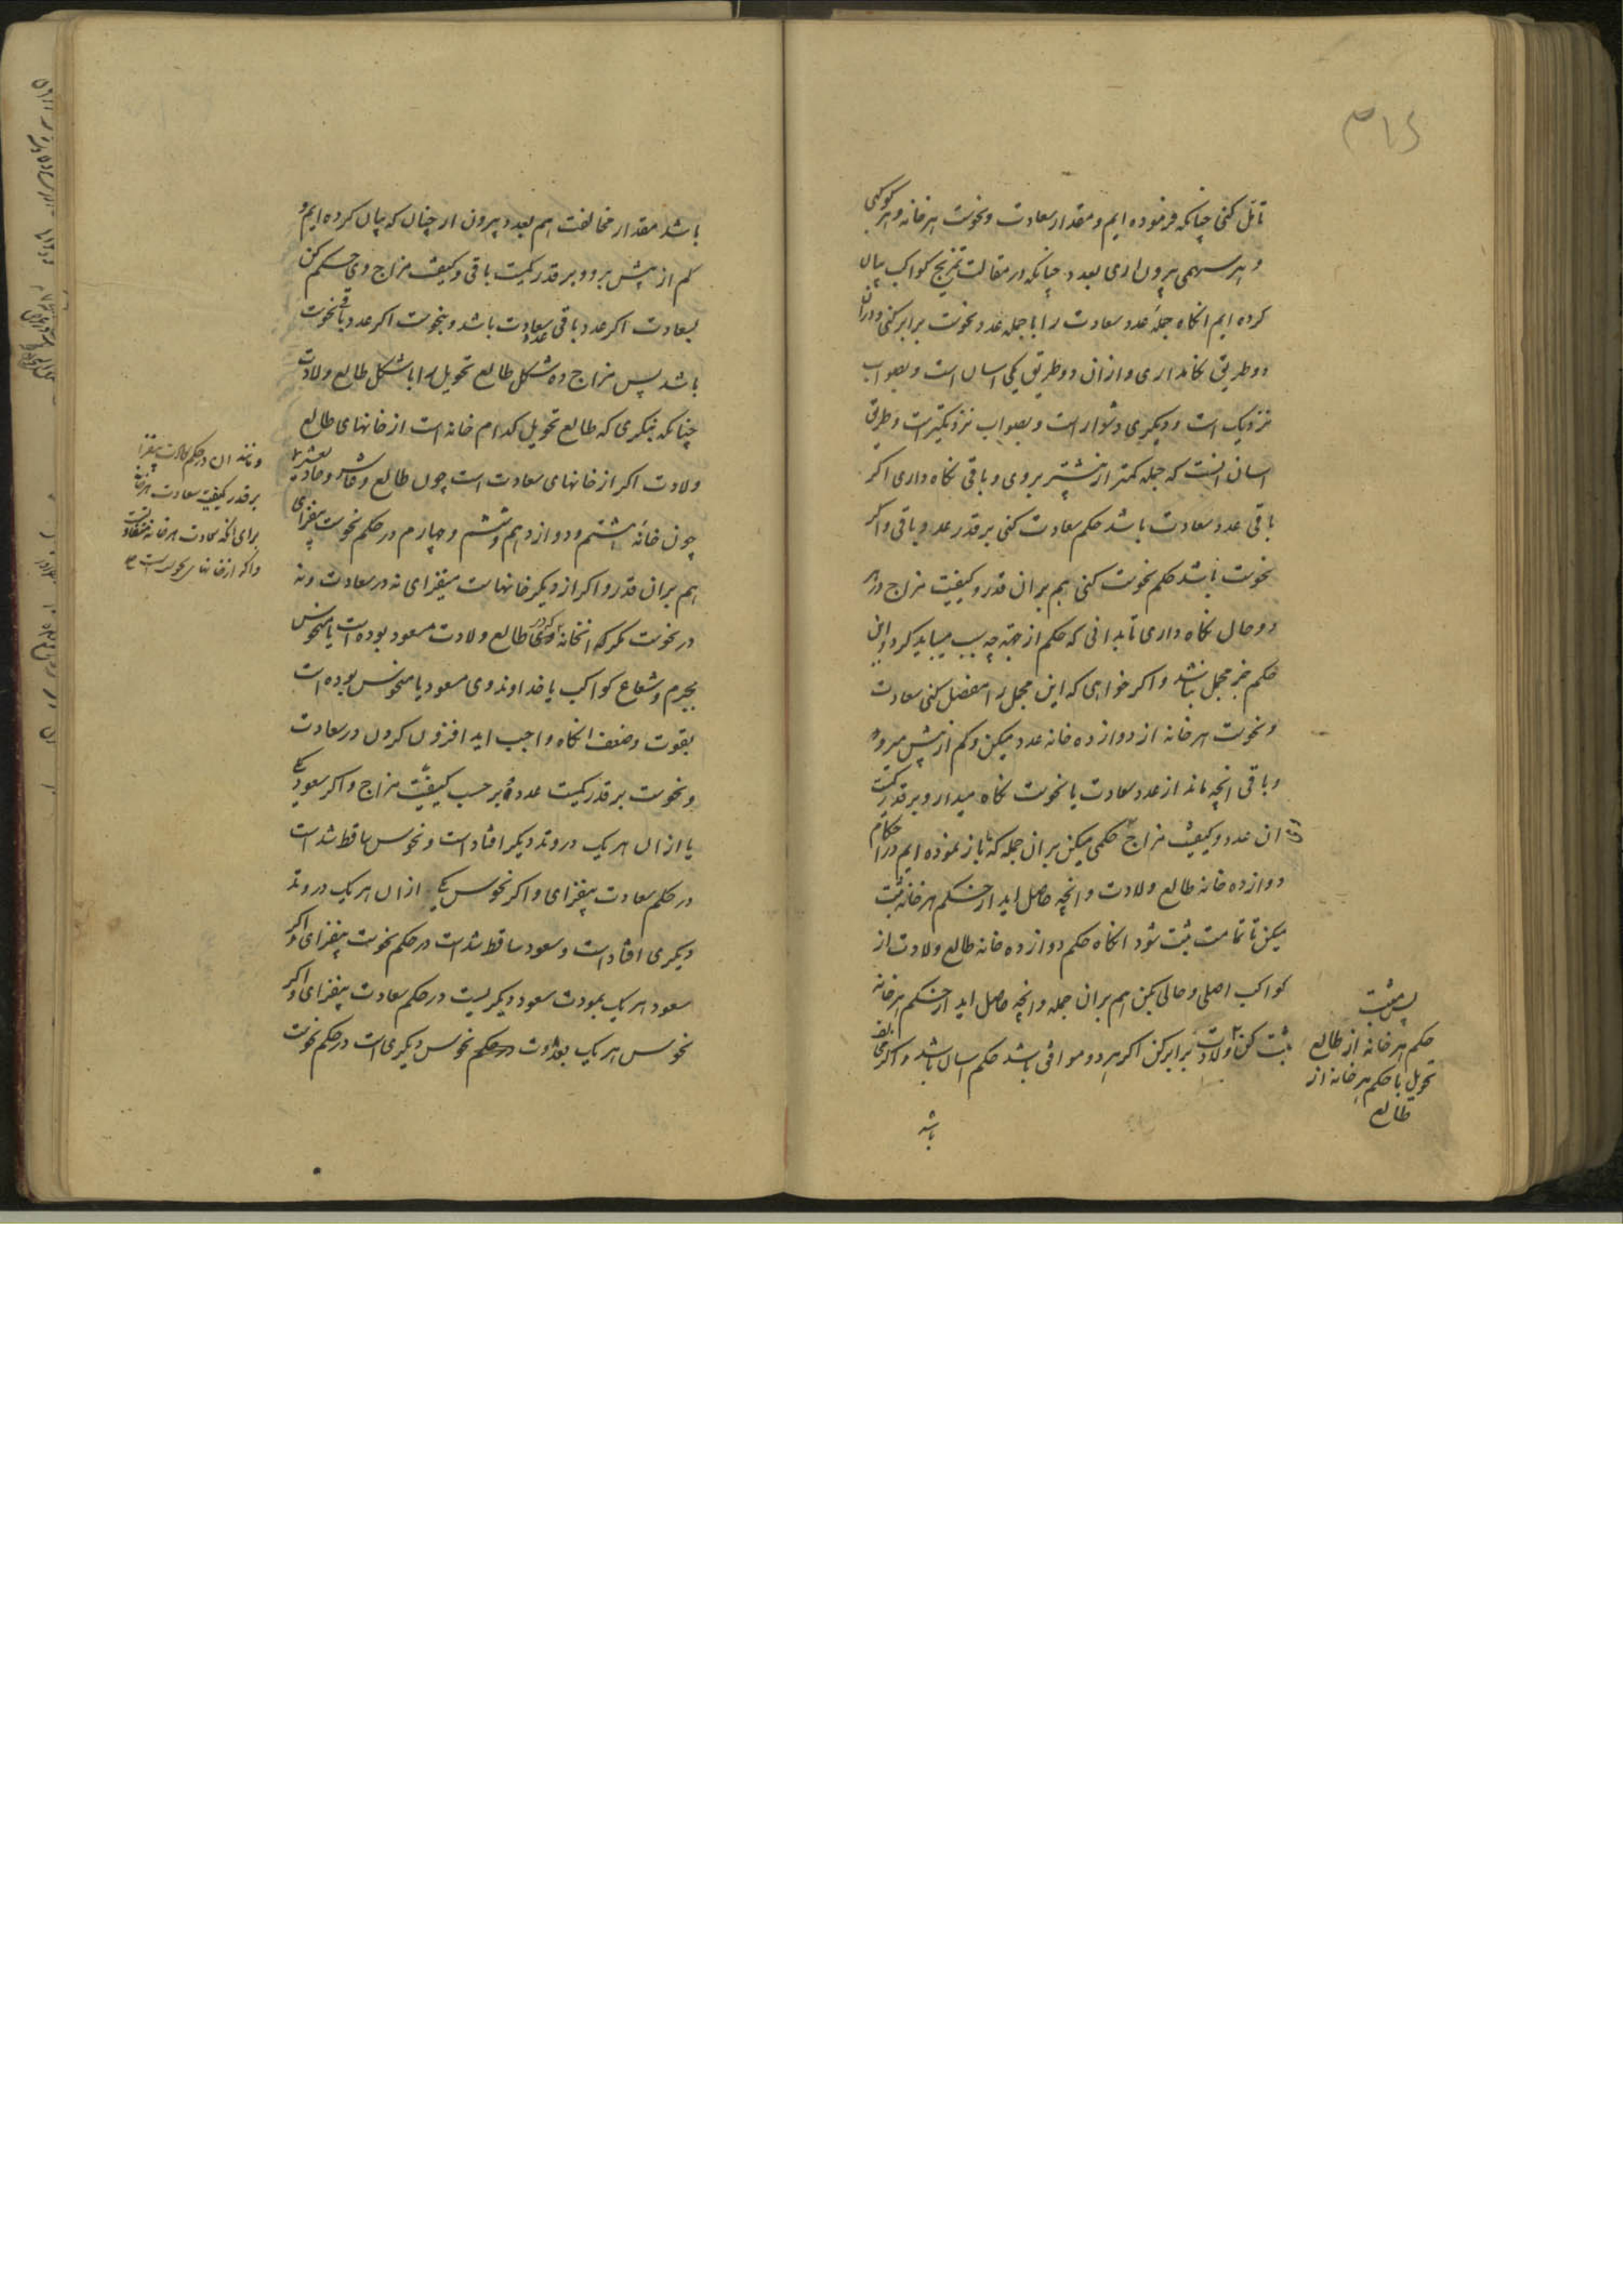 تامل کنی چنانکه فرموده ایم و مقدار سعادت و نحوست هر خانه و هر کوکبی
و هر سهمی بیرون اری بعدد چنانکه در مقالت تمزیج کواکب بیان
کرده ایم انکاه جمله عدد سعادت را با جمله عدد نحوست برابر کنی و دران
دو طریق نکاهداری و ازان دو طریق یکی اسان است و بصواب
نزدیک است و دیکری دشوار است و بصواب نزدیکتر است و طریق
اسان انست که جمله کمتر از بیشتر بروی و باقی نکاه داری اکر
باقی عدد سعادت باشد حکم سعادت کنی بر قدر عدد باقی و اکر
نحوست باشد حکم نحوست کنی هم بران قدر و کیفیت مزاج در هر
دو حال نکاه داری تا بدانی که حکم از جهة چه سبب میباید کرد و این
حکم جز مجمل نباشد و اکر خواهی که این مجمل را مفصل کنی سعادت
و نحوست هر خانه از دوازده خانه عدد میکن و کم از بیش میرو
و باقی انچه ماند از عدد سعادت یا نحوست نکاه میدار و بر قدر کمیت
ان عدد و کیفیت مزاج حکمی میکن بران جمله که باز نموده ایم در احکام
دوازده خانه طالع ولادت و انچه حاصل اید از حکم هر خانه ثبت
میکن تا تمامت ثبت شود انکاه حکم دوازده خانه طالع ولادت از
کواکب اصلی و حالی بکن هم بران جمله و انچه حاصل اید از حکم هر خانه
ثبت کن ولادت برابر کن اکر هر دو موافق باشد حکم اسان باشد و اکر مخالف
پس مثبت
حکم هر خانه از طالع
تحویل با حکم هر خانه از
طالع
باشد
باشد مقدار مخالفت هم بعدد بیرون ار چنان که بیان کرده ایم و
کم از بیش برو و بر قدر کمیت باقی و کیفیت مزاج وی حکم کن
بسعادت اکر عدد باقی عدد سعادت باشد و بنحوست اکر عدد باقی نحوست
باشد پس مزاج ده شکل طالع تحویل را با شکل طالع ولادت
چنانکه بنکری که طالع تحویل کدام خانه است از خانهای طالع
ولادت اکر از خانهای سعادت است چون طالع و عاشر و حادیعشر
چون خانه هشتم و دوازدهم و ششم و چهارم در حکم نحوست بیفزای
هم بران قدر و اکر از دیکر خانهاست میفزای نه در سعادت و نه
در نحوست مکر که انخانه که در طالع ولادت مسعود بوده است یا منحوس
بجرم و شعاع کواکب یا خداوند وی مسعود یا منحوس بوده است
بقوت و ضعف انکاه واجب اید افزون کردن در سعادت
و نحوست بر قدر کمیت عدد و بر حسب کیفیت مزاج و اکر سعود یکی
یا ازان هر یک در وتد دیکر افتاد است و نحوس ساقط شد است
در حکم سعادت بیفزای و اکر نحوس یکی ازان هر یک در وتد
دیکری افتاد است و سعود ساقط شد است در حکم نحوست بیفزای و اکر
سعود هر یک بمودت سعود دیکریست در حکم سعادت بیفزای و اکر
نحوس هر یک بعداوت نحوس دیکری است در حکم نحوست
و مانند ان در حکم سعادت بیفزا
بر قدر کیفیت سعادت هر خانه
برای انکه سعادت هر خانه متفاوت است
و اکر از خانها نحوست است